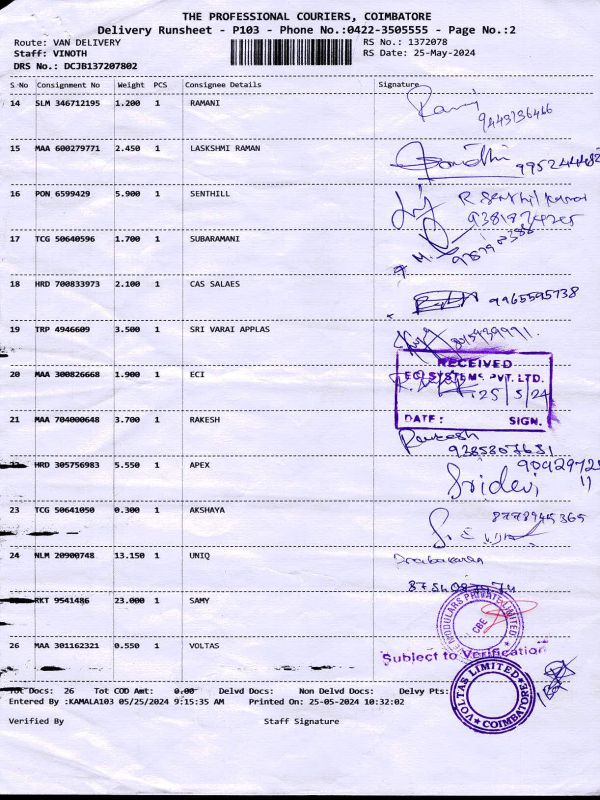 THE PROFESSIONAL COURIERS, COIMBATORE
Delivery Runsheet - P103 - Phone No.:0422-3505555 - Page No.:2
Route: VAN DELIVERY RS No.: 1372078
Staff: VINOTH RS Date: 25-May-2024
DRS No.: DCJB137207802
S No Consignment No Weight PCS Consignee Details Signature
14 SLM 346712195 1.200 1 RAMANI
9443736466
15 MAA 600279771 2.450 1 LASKSHMI RAMAN
16 PON 6599429 5.900 1 SENTHILL R Senthil kumar
17 TCG 50640596 1.700 1 SUBARAMANI
18 HRD 700833973 2.100 1 CAS SALAES
9965595738
19 TRP 4946609 3.500 1 SRI VARAI APPLAS
RECEIVED
20 MAA 300826668 1.900 1 ECI ECI SYSTEMS PVT. LTD.
25/5/24
21 MAA 704000648 3.700 1 RAKESH DATE: SIGN.
HRD 305756983 5.550 1 APEX
Sridevi
23 TCG 50641050 0.300 1 AKSHAYA 8778945365
24 NLM 20900748 13.150 1 UNIQ Prabakaran
RKT 9541486 23.000 1 SAMY
MODULARS PRIVATE LIMITED
CBE
26 MAA 301162321 0.550 1 VOLTAS Subject to Verification
VOLTAS LIMITED
COIMBATORE
Tot Docs: 26 Tot COD Amt: 0.00 Delvd Docs: Non Delvd Docs: Delvy Pts:
Entered By :KAMALA103 05/25/2024 9:15:35 AM Printed On: 25-05-2024 10:32:02
Verified By Staff Signature